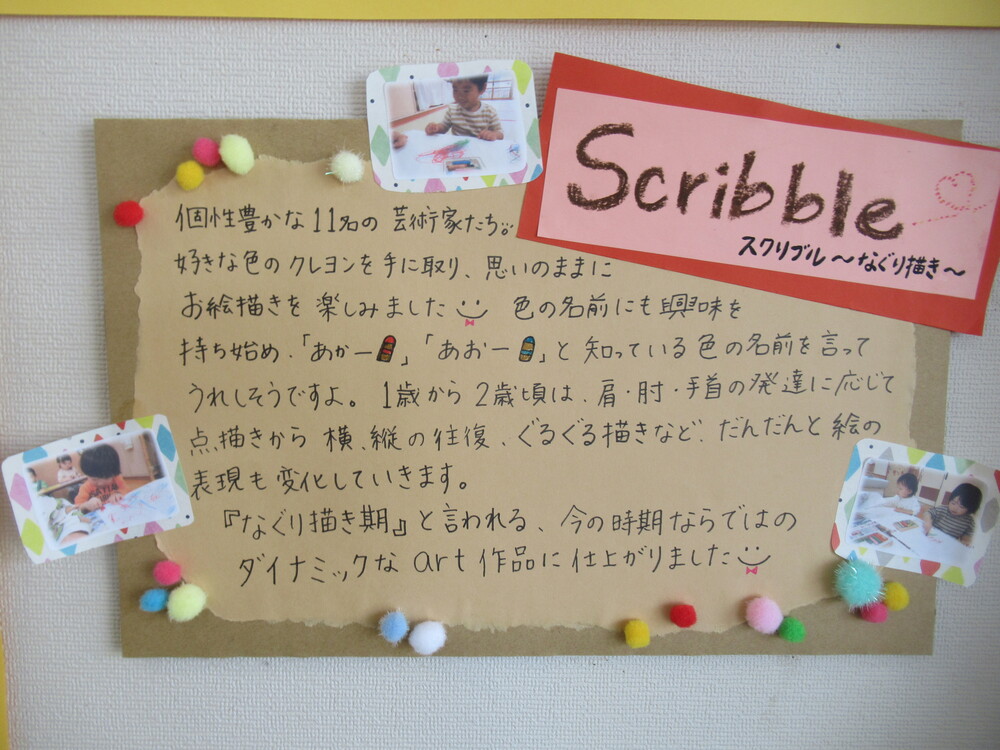 Scribble
スクリブル～なぐり描き～
個性豊かな11名の芸術家たち。
好きな色のクレヨンを手に取り、思いのままに
お絵描きを楽しみました 色の名前にも興味を
持ち始め、「あかー」「あおー」と知っている色の名前を言って
うれしそうですよ。1歳から2歳頃は、肩・肘・手首の発達に応じて
点描きから横、縦の往復、ぐるぐる描きなど、だんだんと絵の
表現も変化していきます。
『なぐり描き期』と言われる、今の時期ならではの
ダイナミックなart作品に仕上がりました